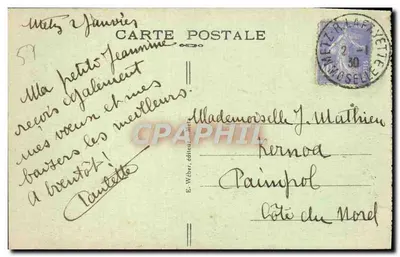 57
Metz 2 Janvier
CARTE POSTALE
Ma petite Jeannine
reçois également
mes vœux et mes
baisers les meilleurs.
A bientôt!
Paulette
METZ-R. LAFAYETTE
2 -1
30
MOSELLE
CPARAMA
Mademoiselle J. Mathieu
Kernod
Paimpol
Côte du Nord